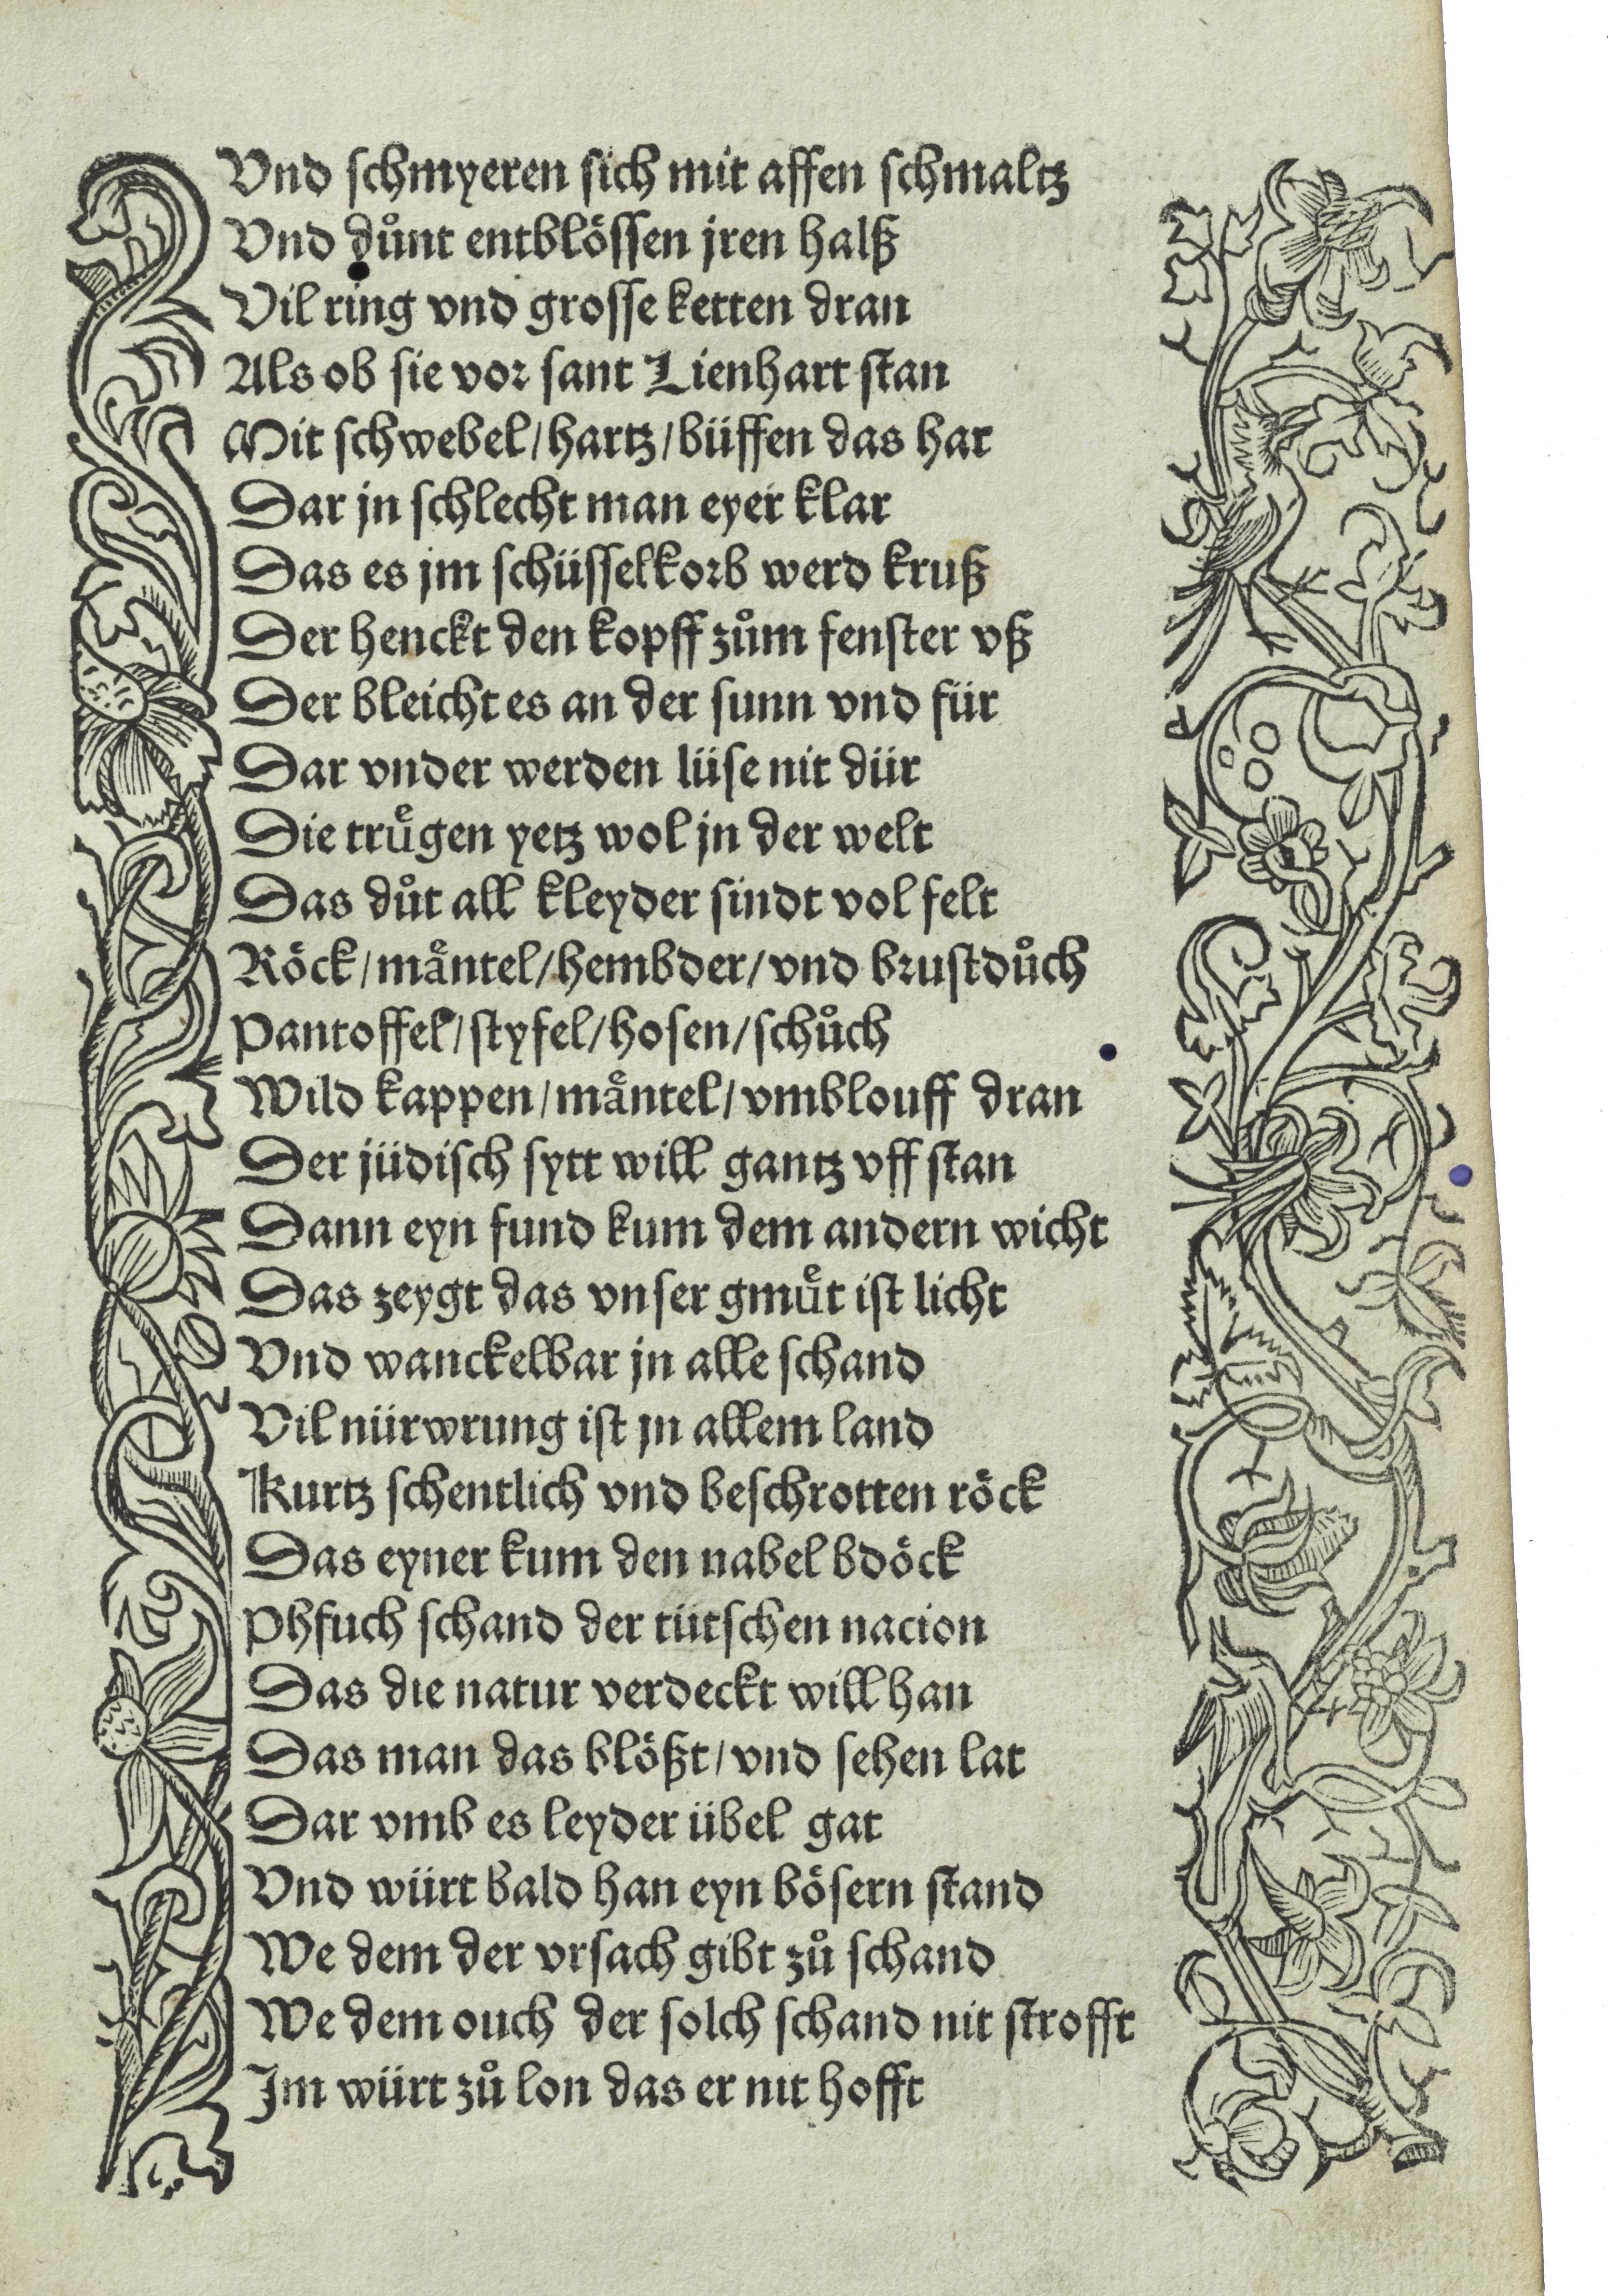 Vnd schmyeren sich mit affen schmaltz
Vnd důnt entblössen jren halß
Vil ring vnd grosse ketten dran
Als ob sie vor sant Lienhart stan
Mit schwebel/hartz/büffen das har
Dar jn schlecht man eyer klar
Das es jm schüsselkorb werd kruß
Der henckt den kopff zům fenster vß
Der bleicht es an der sunn vnd für
Dar vnder werden lüse nit dür
Die truͤgen yetz wol jn der welt
Das důt all kleyder sindt vol felt
Röck/maͤntel/hembder/vnd brustdůch
Pantoffel/styfel/hosen/schůch
Wild kappen/maͤntel/vmblouff dran
Der jüdisch sytt will gantz vff stan
Dann eyn fund kum dem andern wicht
Das zeygt das vnser gmuͤt ist licht
Vnd wanckelbar jn alle schand
Vil nürwrung ist jn allem land
Kurtz schentlich vnd beschrotten röck
Das eyner kum den nabel bdöck
Phfuch schand der tütschen nacion
Das die natur verdeckt will han
Das man das blößt/vnd sehen lat
Dar vmb es leyder übel gat
Vnd würt bald han eyn bösern stand
We dem der vrsach gibt zů schand
We dem ouch der solch schand nit strofft
Im würt zů lon das er nit hofft